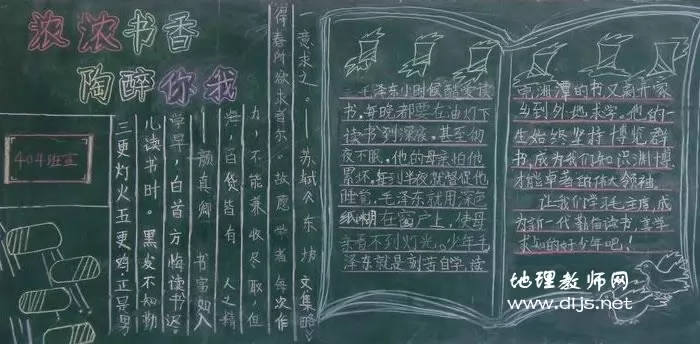 浓浓书香
陶醉你我
404班宣
三更灯火五更鸡,正是男
儿读书时。黑发不知勤
学早,白首方悔读书迟。
——颜真卿 书富如入
海,百货皆有 人之精
力,不能兼收尽取,但
得春所欲求者尔。故愿学者每次作
一意求之。——苏轼《东坊文集略》
毛泽东小时候酷爱读
书,每晚都要在油灯下
读书到深夜,甚至彻
夜不眠。他的母亲怕他
累坏,每到半夜就督促他
睡觉,毛泽东就用深色
纸糊在窗户上,使母
亲看不到灯光。少年毛
泽东就是刻苦自学,读
完湘潭的书又离开家
乡到外地求学。他的一
生始终坚持博览群
书,成为我们知识渊博
才能卓著的伟大领袖。
让我们学习毛主席,成
为新一代勤自读书,善学
求知的好少年吧!
地理教师网
www.dljs.net